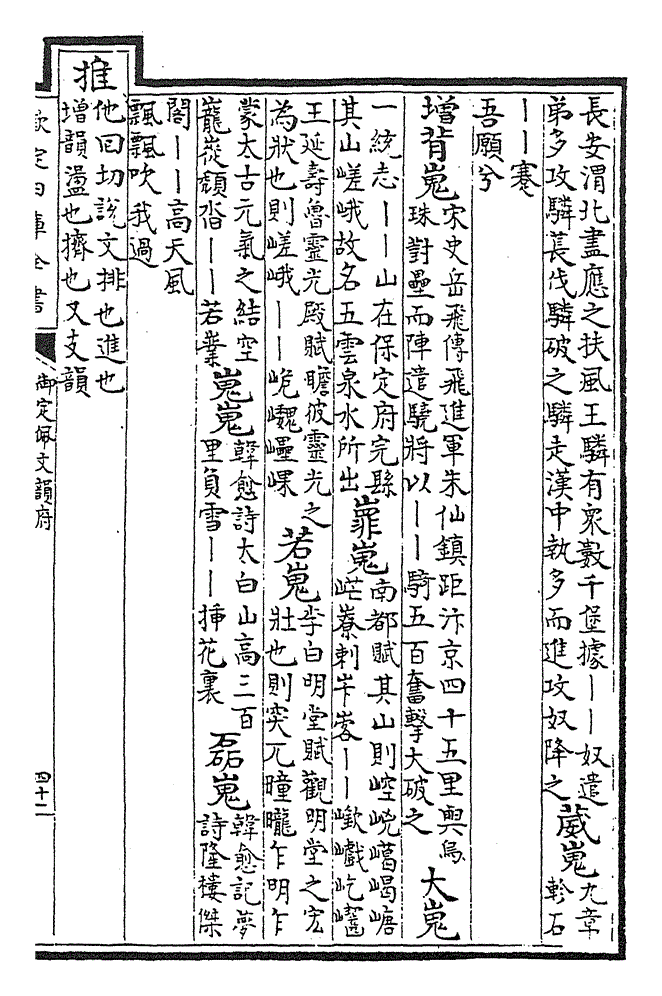 長安渭北盡應之扶風王驎有衆數千堡據——奴遣
弟多攻驎萇伐驎破之驎走漢中執多而進攻奴降之
葳嵬
九章
軫石
——蹇
吾願兮
增背嵬
宋史岳飛傳飛進軍朱仙鎮距汴京四十五里與烏
珠對壘而陣遣驍將以——騎五百奮擊大破之
大嵬
一統志——山在保定府完縣
其山嵯峨故名五雲泉水所出
嶵嵬
南都賦其山則崆㟅嶱嵑嵣
㟐嶚剌岝㟯——嶔巇屹㠠
王延壽魯靈光殿賦瞻彼靈光之
為狀也則嵯峨——峞巍㠥㟴
若嵬
李白明堂賦觀明堂之宏
壯也則突兀曈曨乍明乍
蒙太古元氣之結空
巃嵷頽沓——若嶪
嵬嵬
韓愈詩太白山高三百
里負雪——揷花裏
磊嵬
韓愈記夢
詩隆樓傑
閣——高天風
飄飄吹我過
推
他回切說文排也進也
增韻盪也擠也又支韻
欽定四庫全書
御定佩文韻府
四十二